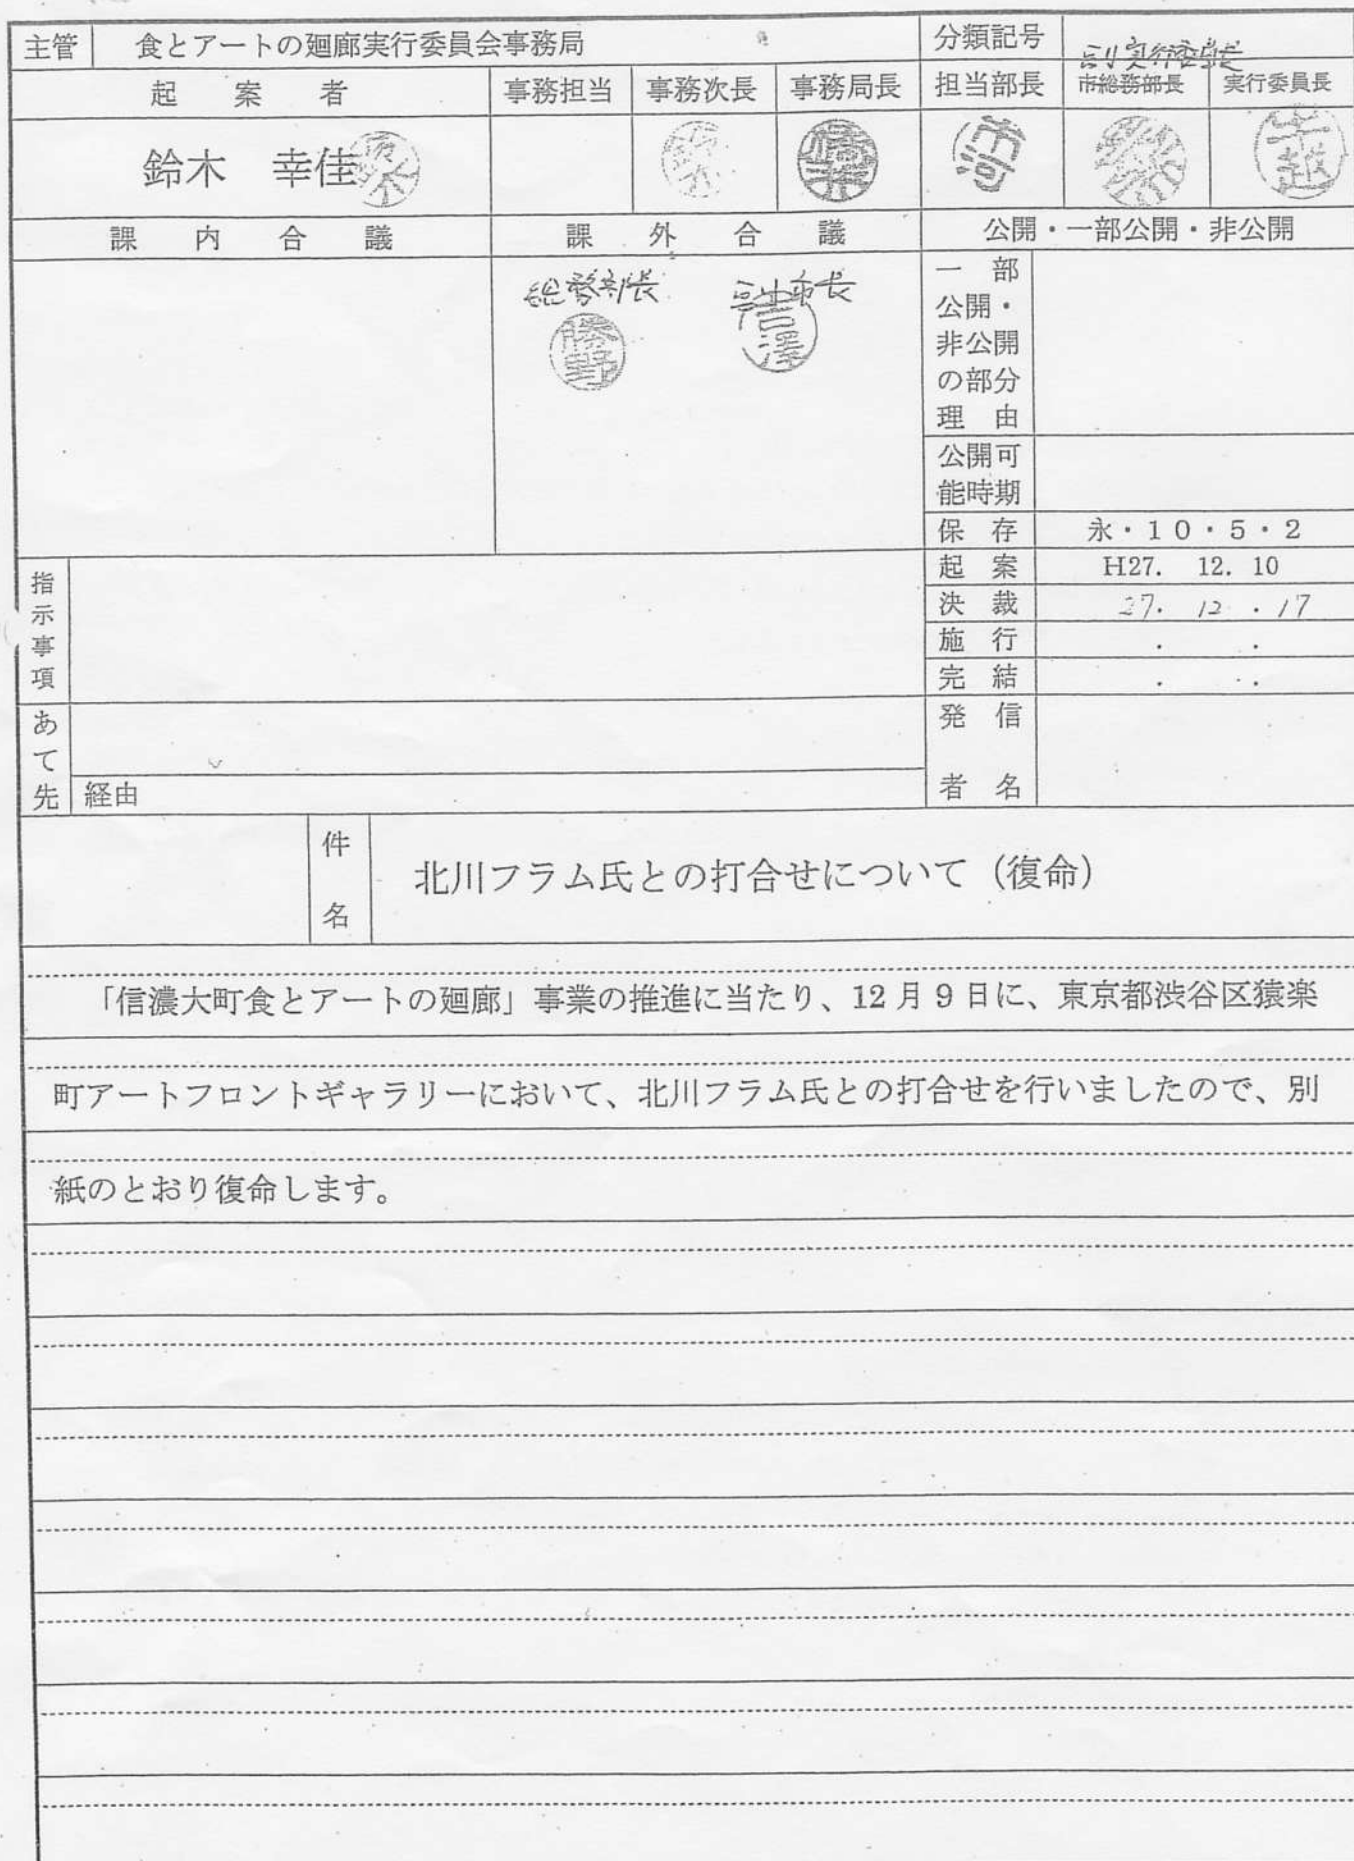 主管 食とアートの廻廊実行委員会事務局 分類記号
副実行委員長
起案者 事務担当 事務次長 事務局長 担当部長 市総務部長 実行委員長
鈴木 幸佳 鈴木 市河
課内合議 課外合議 公開・一部公開・非公開
総務部長 副市長
勝野 吉澤
一部
公開・
非公開
の部分
理由
公開可
能時期
保存 永・10・5・2
起案 H27. 12. 10
決裁 27. 12. 17
施行 . .
完結 . .
指示事項
あて先
発信
者名
経由
件名 北川フラム氏との打合せについて（復命）
「信濃大町食とアートの廻廊」事業の推進に当たり、12月9日に、東京都渋谷区猿楽
町アートフロントギャラリーにおいて、北川フラム氏との打合せを行いましたので、別
紙のとおり復命します。